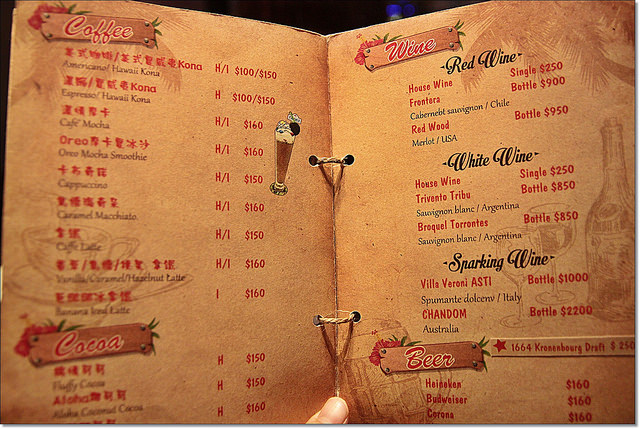 Coffee
美式咖啡/美式夏威夷Kona H/I $100/$150
Americano/ Hawaii Kona
濃縮/夏威夷Kona H $100/$150
Espresso/ Hawaii Kona
漂情摩卡 H/I $160
Café Mocha
Oreo摩卡夏冰沙 H/I $160
Oreo Mocha Smoothie
卡布奇諾 H/I $150
Cappuccino
焦糖瑪奇朵 H/I $160
Caramel Macchiato
拿鐵 H/I $150
Caffe Latte
香草/焦糖/榛果 拿鐵 H/I $160
Vanilla/Caramel/Hazelnut Latte
I $160
Banana Iced Latte
Cocoa
H $150
Fluffy Cocoa
H $150
Aloha Coconut Cocoa
H $160
Wine
-Red Wine-
House Wine Single $250
Frontera Bottle $900
Cabernebt sauvignon / Chile
Red Wood Bottle $950
Merlot / USA
-White Wine-
House Wine Single $250
Trivento Tribu Bottle $850
Sauvignon blanc / Argentina
Broquel Torrontes Bottle $850
Sauvignon blanc / Argentina
-Sparking Wine-
Villa Veroni ASTI Bottle $1000
Spumante dolcenv / Italy
CHANDOM Bottle $2200
Australia
Beer
1664 Kronenbourg Draft $ 250
Heineken $160
Budweiser $160
Corona $160